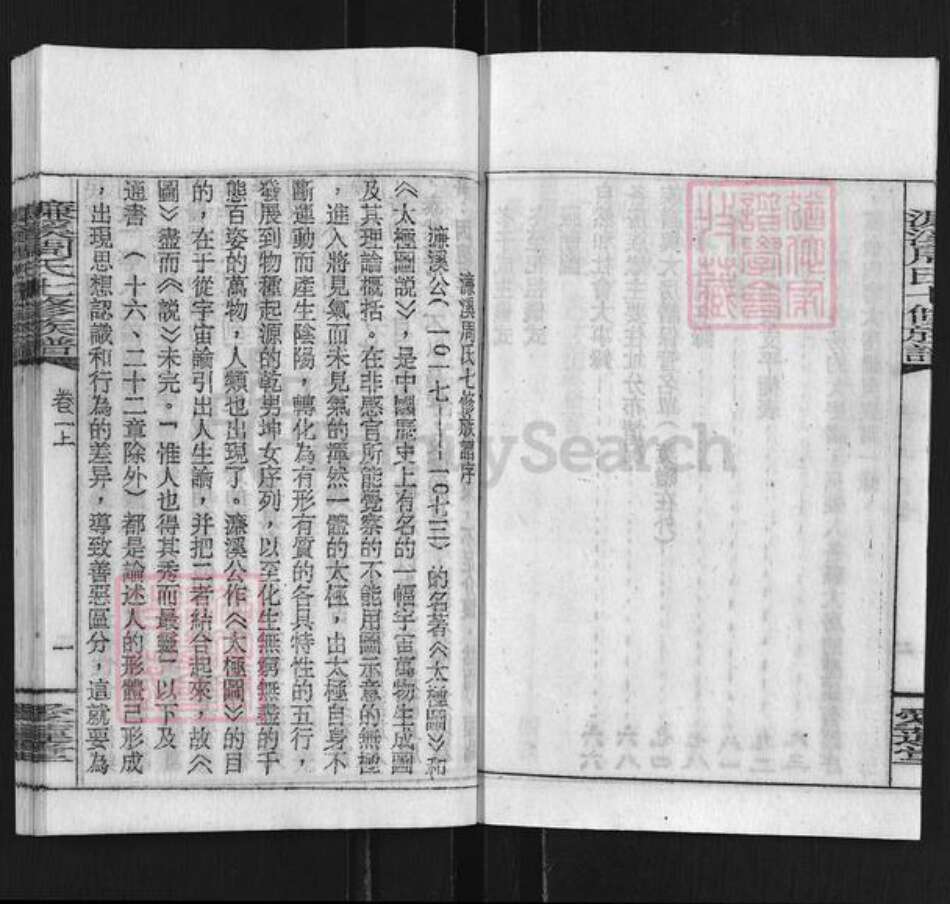 濂溪周氏七修族譜
愛蓮堂
濂溪周氏七修族譜序
濂溪公(一〇一七——一〇七三)的名著《太極圖》和
《太極圖說》,是中國歷史上有名的一幅宇宙萬物生成圖
及其理論概括。在非感官所能覺察的不能用圖示意的無極
,進入將見氣而未見氣的渾然一體的太極,由太極自身不
斷運動而產生陰陽,轉化為有形有質的各具特性的五行,
發展到物種起源的乾男坤女序列,以至化生無窮無盡的千
態百姿的萬物,人類也出現了。濂溪公作《太極圖》的目
的,在于從宇宙論引出人生論,并把二者結合起來,故《
圖》盡而《說》未完。「惟人也得其秀而最靈」以下及
通書(十六、二十二章除外)都是論述人的形體已形成
,出現思想認識和行為的差异,導致善惡區分,這就要為
濂溪周氏七修族譜
卷一上
一
愛蓮堂
FamilySearch